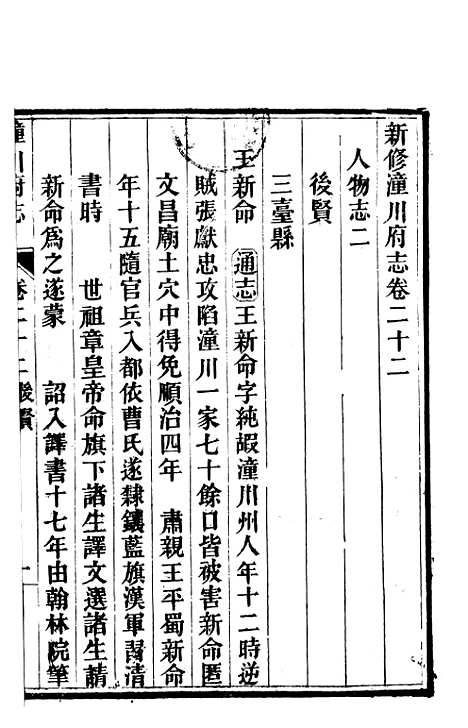 新修潼川府志卷二十二
人物志二
後賢
三臺縣
王新命 通志 王新命字純嘏潼川州人年十二時逆
賊張獻忠攻陷潼川一家七十餘口皆被害新命匿
文昌廟土穴中得免順治四年 肅親王平蜀新命
年十五隨官兵入都依曹氏遂隸鑲藍旗漢軍習清
書時 世祖章皇帝命旗下諸生譯文選諸生請
新命爲之遂蒙 詔入譯書十七年由翰林院筆
潼川府志 卷二十二 後賢 一